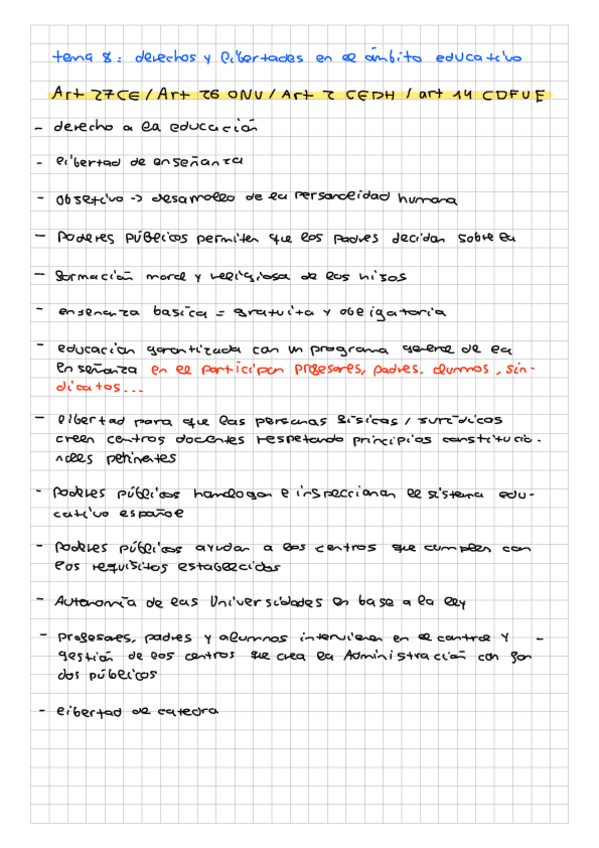 tema 8: derechos y libertades en el ámbito educativo
Art 27CE / Art 26 ONU / Art 2 CEDH / art 14 CDFUE
- derecho a la educación
- libertad de enseñanza
- objetivo -> desarrollo de la personalidad humana
- Poderes públicos permiten que los padres decidan sobre la
- formación moral y religiosa de los hijos
- enseñanza basica = gratuita y obligatoria
- educación garantizada con un programa general de la
enseñanza en el participan profesores, padres, alumnos, sin-
dicatos...
- libertad para que las personas físicas / jurídicos
creen centros docentes respetando principios constitucio-
nales pertinentes
- poderes públicos homologan e inspeccionan el sistema edu-
cativo español
- poderes públicos ayudan a los centros que cumplen con
los requisitos establecidos
- Autonomía de las Universidades en base a la ley
- profesores, padres y alumnos intervienen en el control y -
gestión de los centros que crea la Administración con fon
dos públicos
- libertad de catedra